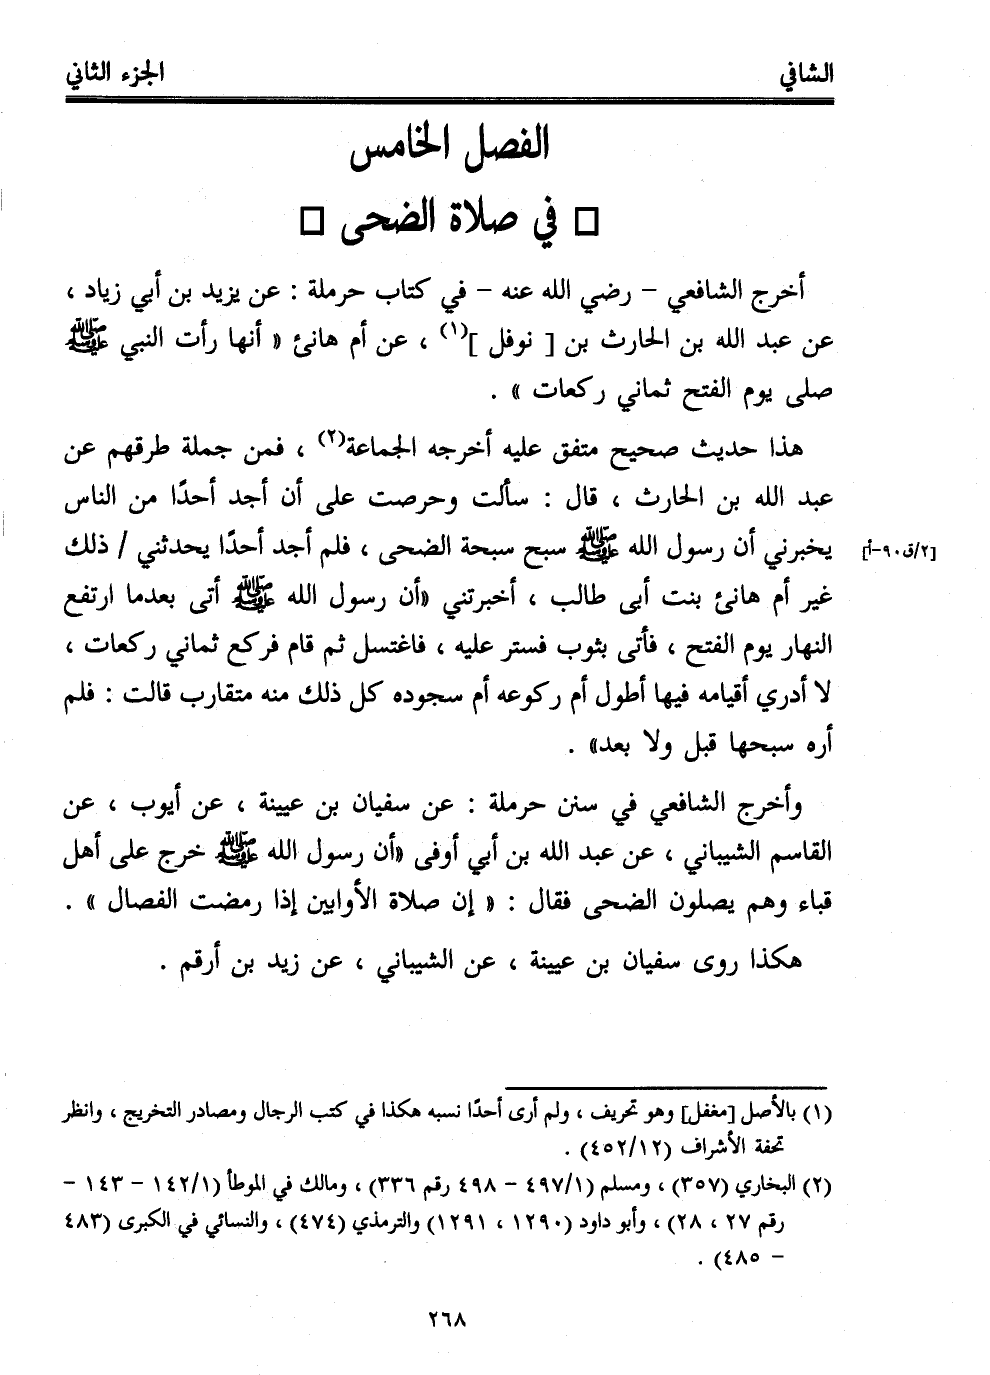 الشافي الجزء الثاني
الفصل الخامس
□ في صلاة الضحى □
أخرج الشافعي – رضي الله عنه – في كتاب حرملة : عن يزيد بن أبي زياد ،
عن عبد الله بن الحارث بن [ نوفل ](١) ، عن أم هانئ « أنها رأت النبي ﷺ
صلى يوم الفتح ثماني ركعات » .
هذا حديث صحيح متفق عليه أخرجه الجماعة(٢) ، فمن جملة طرقهم عن
عبد الله بن الحارث ، قال : سألت وحرصت على أن أجد أحدًا من الناس
يخبرني أن رسول الله ﷺ سبح سبحة الضحى ، فلم أجد أحدًا يحدثني / ذلك [٢/ق٩٠-أ]
غير أم هانئ بنت أبى طالب ، أخبرتني «أن رسول الله ﷺ أتى بعدما ارتفع
النهار يوم الفتح ، فأتى بثوب فستر عليه ، فاغتسل ثم قام فركع ثماني ركعات ،
لا أدري أقيامه فيها أطول أم ركوعه أم سجوده كل ذلك منه متقارب قالت : فلم
أره سبحها قبل ولا بعد» .
وأخرج الشافعي في سنن حرملة : عن سفيان بن عيينة ، عن أيوب ، عن
القاسم الشيباني ، عن عبد الله بن أبي أوفى «أن رسول الله ﷺ خرج على أهل
قباء وهم يصلون الضحى فقال : « إن صلاة الأوابين إذا رمضت الفصال » .
هكذا روى سفيان بن عيينة ، عن الشيباني ، عن زيد بن أرقم .
(١) بالأصل [مغفل] وهو تحريف ، ولم أرى أحدًا نسبه هكذا في كتب الرجال ومصادر التخريج ، وانظر
تحفة الأشراف (٤٥٢/١٢) .
(٢) البخاري (٣٥٧) ، ومسلم (٤٩٧/١ – ٤٩٨ رقم ٣٣٦) ، ومالك في الموطأ (١٤٢/١ – ١٤٣ –
رقم ٢٧ ، ٢٨) ، وأبو داود (١٢٩٠ ، ١٢٩١) والترمذي (٤٧٤) ، والنسائي في الكبرى (٤٨٣
– ٤٨٥) .
٢٦٨